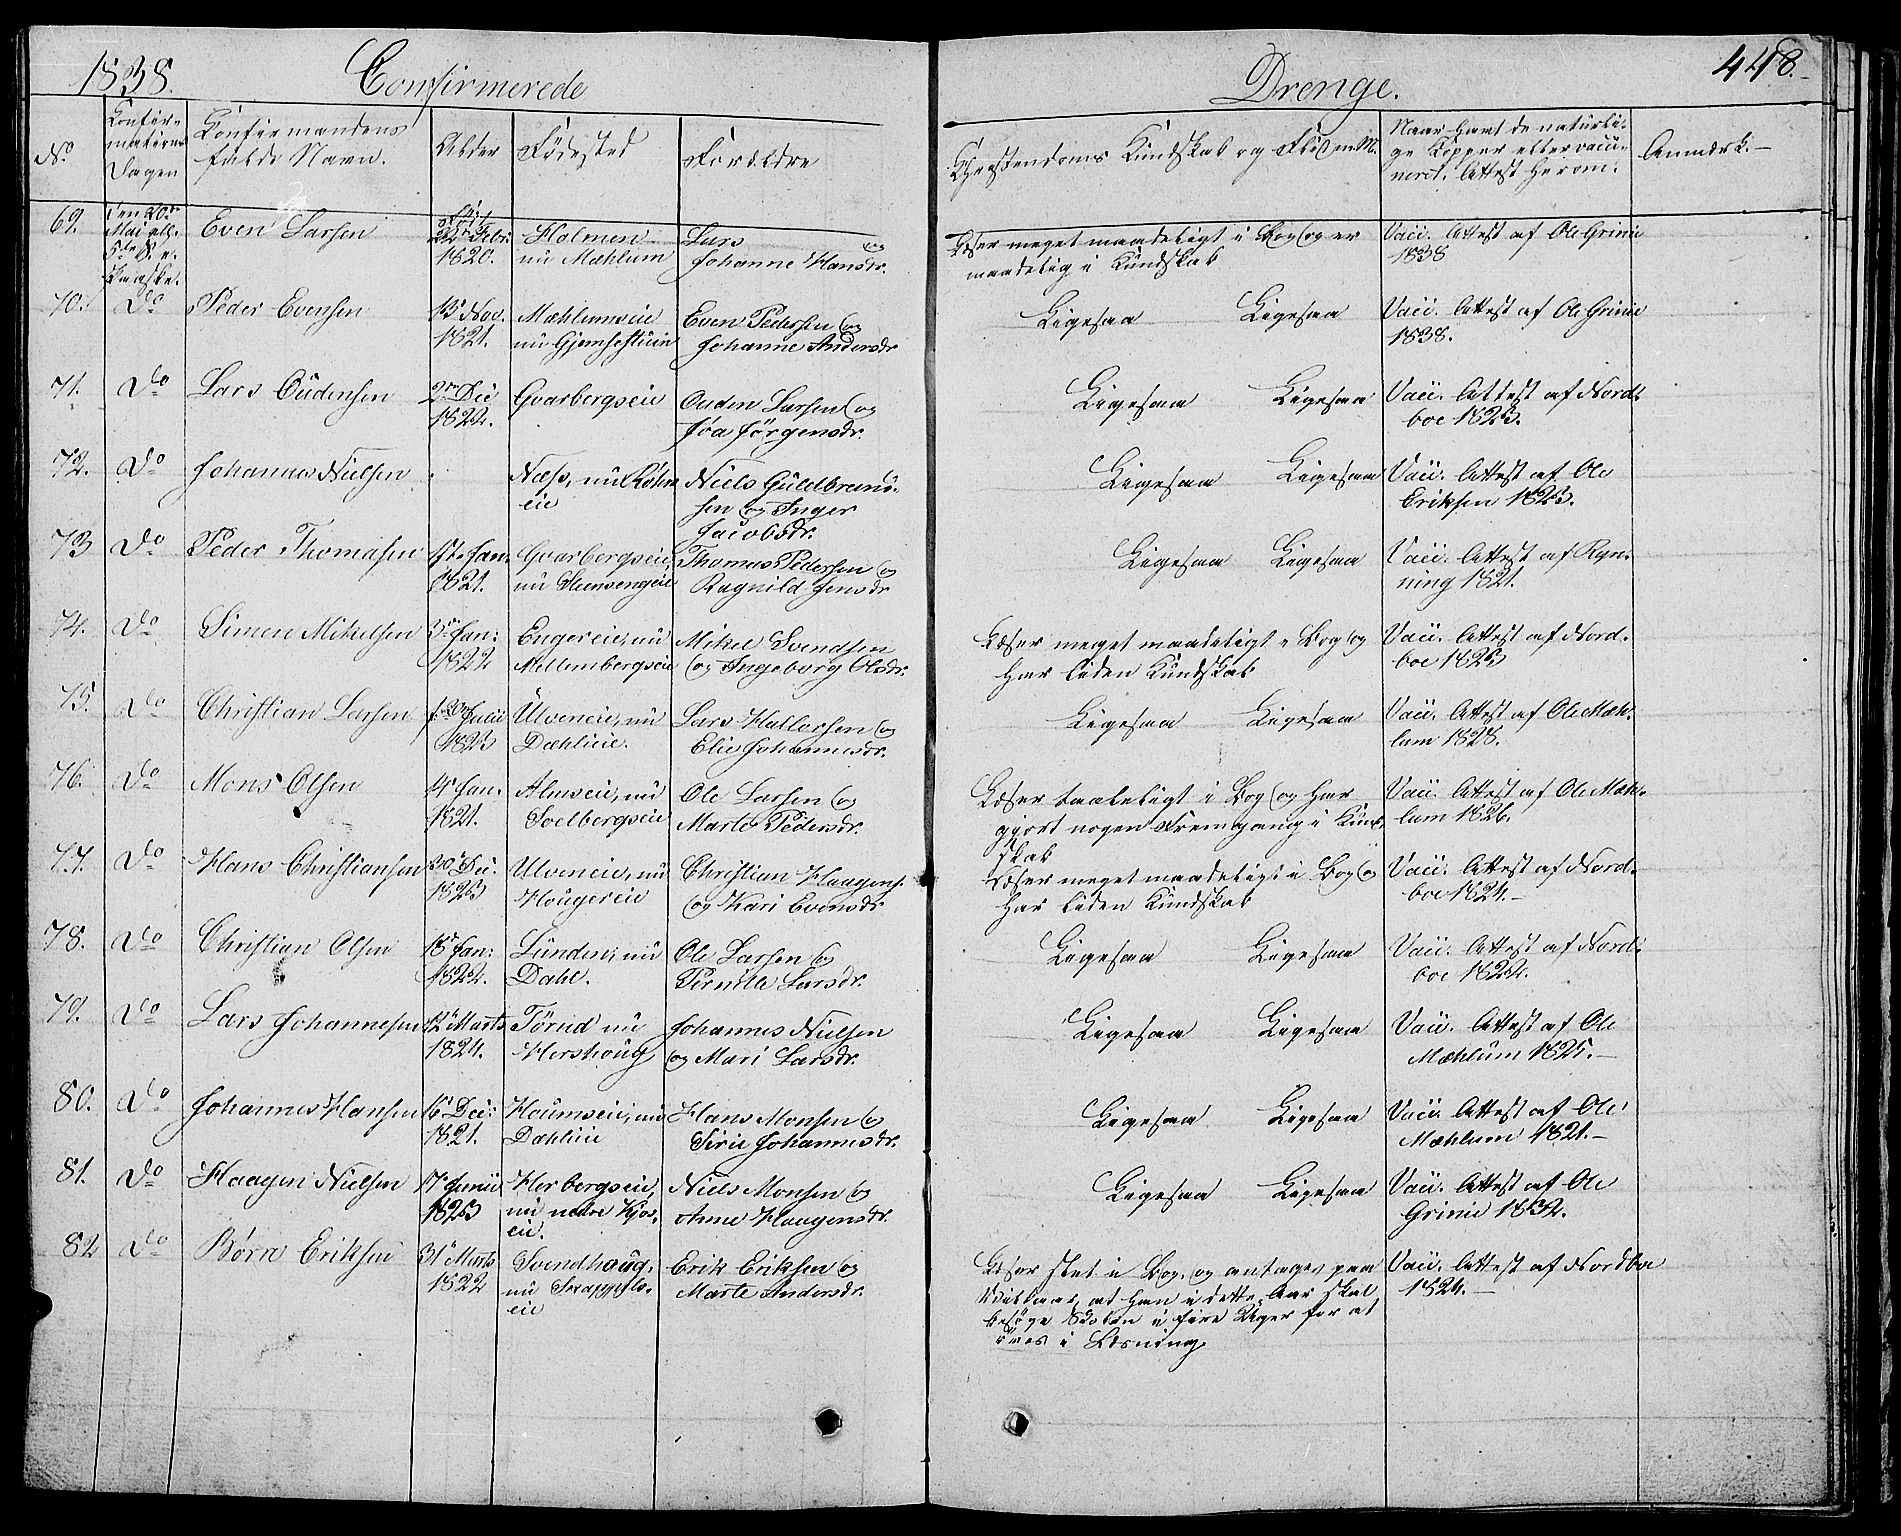 1838.
Confirmerede
Drenge.
448.
No
Confir-
mations
Dagen
Konfirmandens
fulde Navn.
Alder
Fødested
Forældre
Christendoms Kundskab og Flid m. M.
Naar havt de naturli-
ge Kopper eller vacci-
neret. Attest herom.
Anmærk.
69.
den 20de
Mai
5te S. e.
Paaske.
Even Larsen
Født
Febr:
1820.
Holmen
nu Mæhlum
Lars og
Johanne Hansdr.
Læser meget maadeligt i Bog og er
maadelig i Kundskab
Vacc. Attest af Ole Grinie
1838
70.
Do
Peder Evensen
13 Nov.
1821.
Mæhlumseie
nu Gjemsestueie
Even Pedersen og
Johanne Andersdr
Ligesaa Ligesaa
Vacc. Attest af Ole Grinie
1838.
71.
Do
Lars Oudensen
2den Dec
1822.
Gvarbergseie
Ouden Larsen og
Joa Jørgensdr.
Ligesaa Ligesaa
Vacc. Attest af Nord-
boe 1823.
72.
Do
Johannes Nielsen
Næss, nu
eie
Niels Guldbrand-
sen og Inger
Jacobsdr.
Ligesaa Ligesaa
Vacc. Attest af Ole
Eriksen 1823.
73
Do
Peder Thomasen
Jan.
1821.
Gvarbergseie,
nu Stensengeie
Thomas Pedersen og
Ragnild Jensdr
Ligesaa Ligesaa
Vacc. Attest af Ryn-
ning 1821.
74.
Do
Simen Mikelsen
3de Jan:
1822
Engereie, nu
Mellembergseie
Mikel Svendsen
og Ingeborg Olsdr.
Læser meget maadeligt i Bog og
har liden Kundskab
Vacc. Attest af Nord-
boe 1823
75.
Do
Christian Larsen
1823
Ulveneie, nu
Dæhlieie.
Lars Hallorsen og
Elie Johannesdr.
Ligesaa Ligesaa
Vacc. Attest af Ole Mæh-
lum 1828.
76.
Do
Mons Olsen
Jan.
1821.
Almseie, nu
Soelbergseie
Ole Larsen og
Marte Pedersdr.
Læser taaleligt i Bog og har
gjort nogen Fremgang i Kund-
skab
Vacc. Attest af Ole Mæh-
lum 1826.
77.
Do
Hans Christiansen
20 Dec.
1823
Ulveneie, nu
Hougereie
Christian Haagens.
og Kari Evensdr
Læser meget maadeligt i Bog og
har liden Kundskab
Vacc. Attest af Nord-
boe 1824.
78.
Do
Christian Olsen
18 Jan:
1822.
Lunden, nu
Dahl.
Ole Larsen og
Pernille Larsdr.
Ligesaa Ligesaa
Vacc. Attest af Nord-
boe 1822.
79.
Do
Lars Johannesen
12 Marts
1824.
Tørud nu
Hershoug
Johannes Nielsen
og Mari Larsdr.
Ligesaa Ligesaa
Vacc. Attest af Ole
Mæhlum 1825.
80.
Do
Johannes Hansen
16 Dec:
1821.
Houmseie, nu
Dæhlieie
Hans Monsen og
Sirie Johannesdr.
Ligesaa Ligesaa
Vacc. Attest af Ole
Mæhlum 1821.
81.
Do
Haagen Nielsen
17 Junii
1823
Herbergseie,
nu nedre Kjos-
eie.
Niels Monsen og
Anne Haagensdr.
Ligesaa Ligesaa
Vacc. Attest af Ole
Grinie 1832.
82
Do
Børre Eriksen
31 Marts
1822
Svendhoug,
nu
eie
Erik Eriksen og
Marte Andersdr.
Læser slet i Bog, og antages paa
Vilkaar, at han i dette Aar skal
besøge Skolen i fire Uger for at
øves i Læsning
Vacc. Attest af Nordboe
1824.